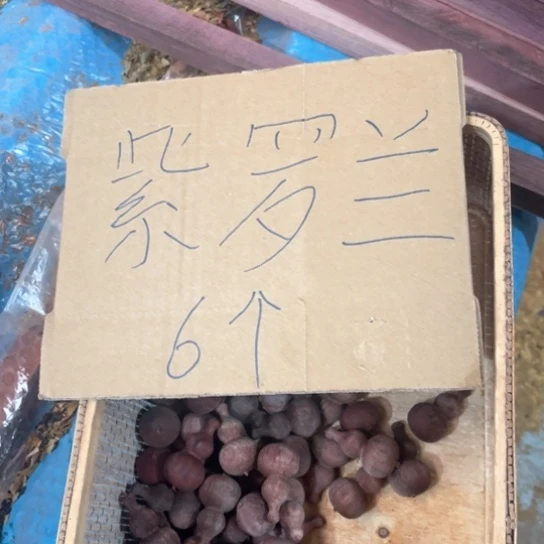 紫罗兰
6个